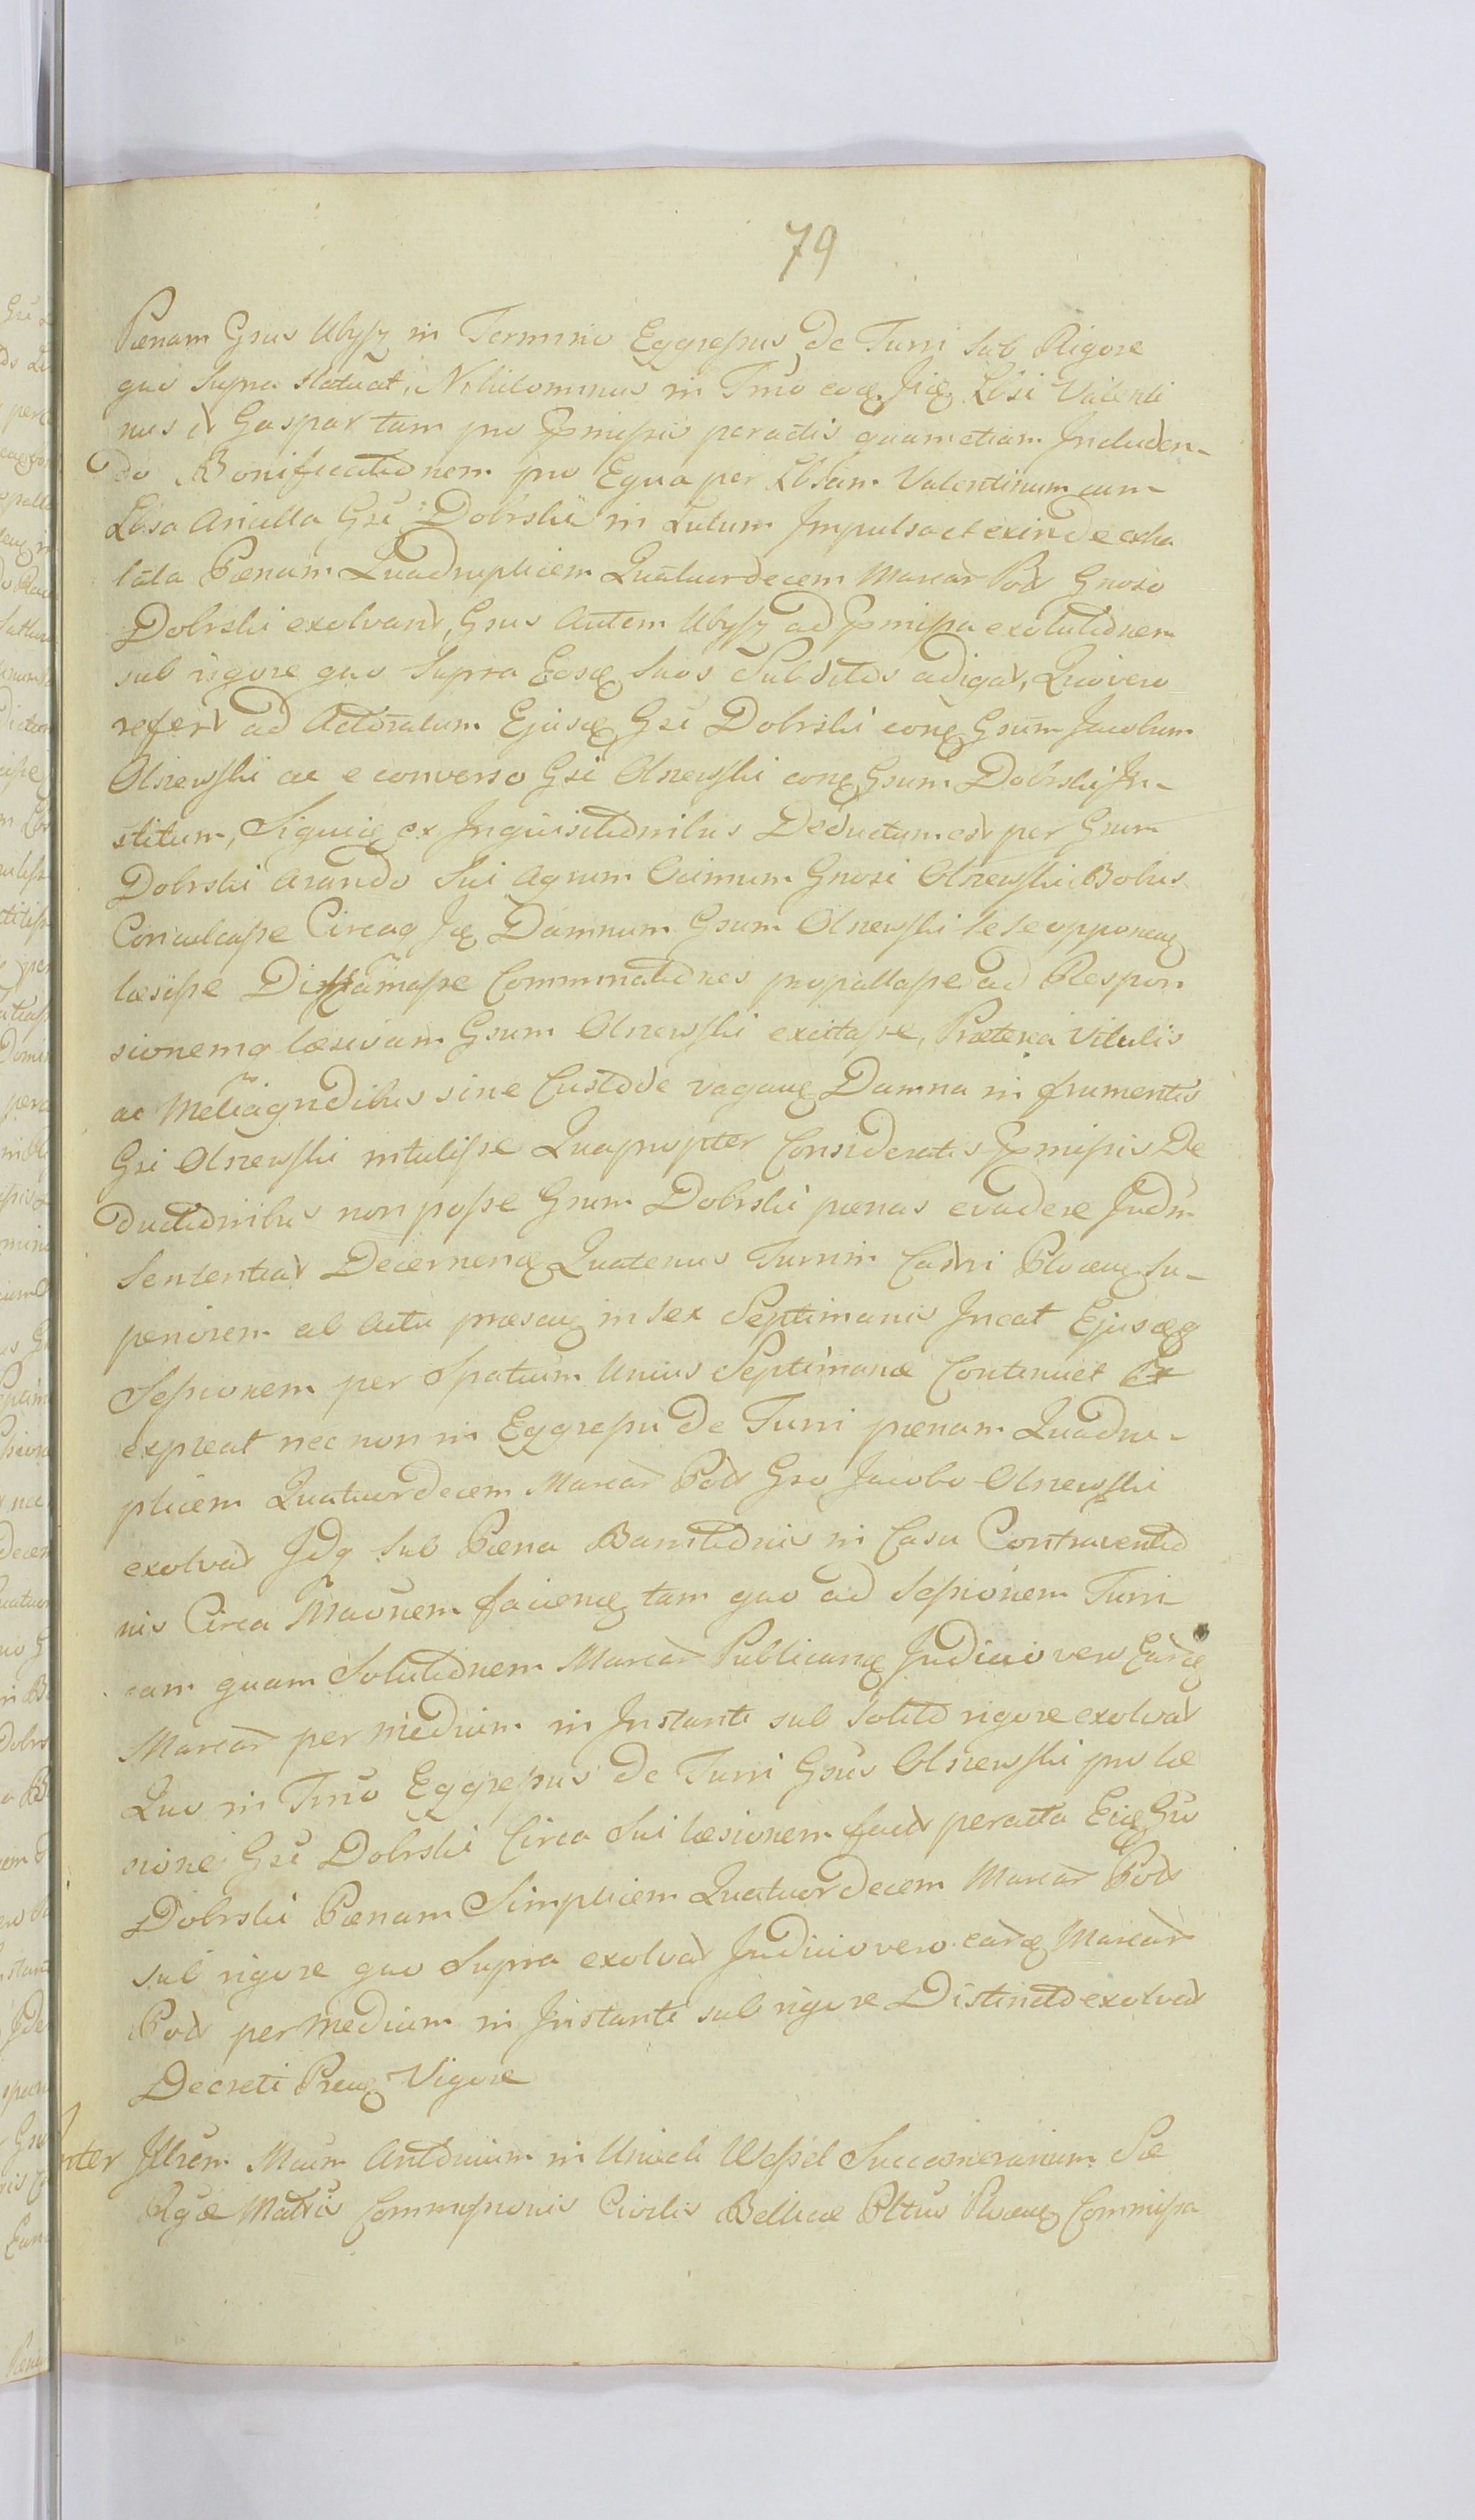 79
Pœnam Gsus Ubysz in Termino Eggressus de Turri sub Rigore
quo supra statuat, Nihilominus in Tmo eoq Jiq Lbsi Valenti
nus et Gaspar tam pro pmissis peractis quam etiam Includen-
do Bonificationem pro Equa per Lbsum Valentinum cum
Lbsa Ancilla Gsi Dobrski in Lutum Impulsa et exinde exha
lata Pœnam Quadruplicem Quatuordecem Marcar Pol Gnoso
Dobrski exolvant, Gsus Autem Ubysz ad pmissa exolutionem
sub rigore quo Supra Eosq suos Subditos adigat, Quo vero
refert ad Actoratum Ejusq Gsi Dobrski conq Gsum Jacobum
Olszewski ac e converso Gsi Olszewski conq Gsum Dobrski In-
stitum, Siquiq ex Inquisitionibus Deductum est per Gsum
Dobrski arando sui Agrum Gnosi Olszewski Bobus
Conculcasse Circaq Jq Damnum Gsum Olszewski sese opponenq
læsisse Diffamasse Comminationes propallasse ad Respon
sionemq læsivam Gsum Olszewski excitasse, Præterea Vitulis
ac Meliagridibus sine Custode vaganq Damna in frumentis
Gsi Olszewski intulisse Quapropter Consideratis pmissis De
ductionibus non posse Gsum Dobrski pœnas evadere Judm
Sententiat Decernenq Quatenus Turrim Castri Plocenq Su-
periorem ab Actu præsenq in sex Septimanis Ineat Ejusqq
Sessionem per Spatium Unius Septimanæ Continuet Et
expleat nec non in Eggressu de Turri pœnam Quadru-
plicem Quatuordecem Marcar Pol Gso Jacobo Olszewski
exolvat Idq sub Pœna Bannitionis in Casu Contraventio
nis Circa facienq tam quo ad Sessionem Turri
cam quam Solutionem Marcar Publicanq Judicio vero Earq
Marcar per medium in Instanti sub solito rigore exolvat
Quo in Tmo Eggressus de Turri Gsus Olszewski pro læ
sione Gsi Dobrski Circa sui læsionem facta peracta Eiq Gso
Dobrski Pœnam Simplicem Quatuordecem Marcar Pol
sub rigore quo Supra exolvat Judicio vero earq Marcar
Pol per medium in Instanti sub rigore Distincto exolvat
Decreti Prenq Vigore
Inter Illrem Mcum Antonium in Unieck Wessel Succamerarium Sæ
Rgæ Mattis Commissionis Civilis Bellicæ Pltus Plocenq Commissa